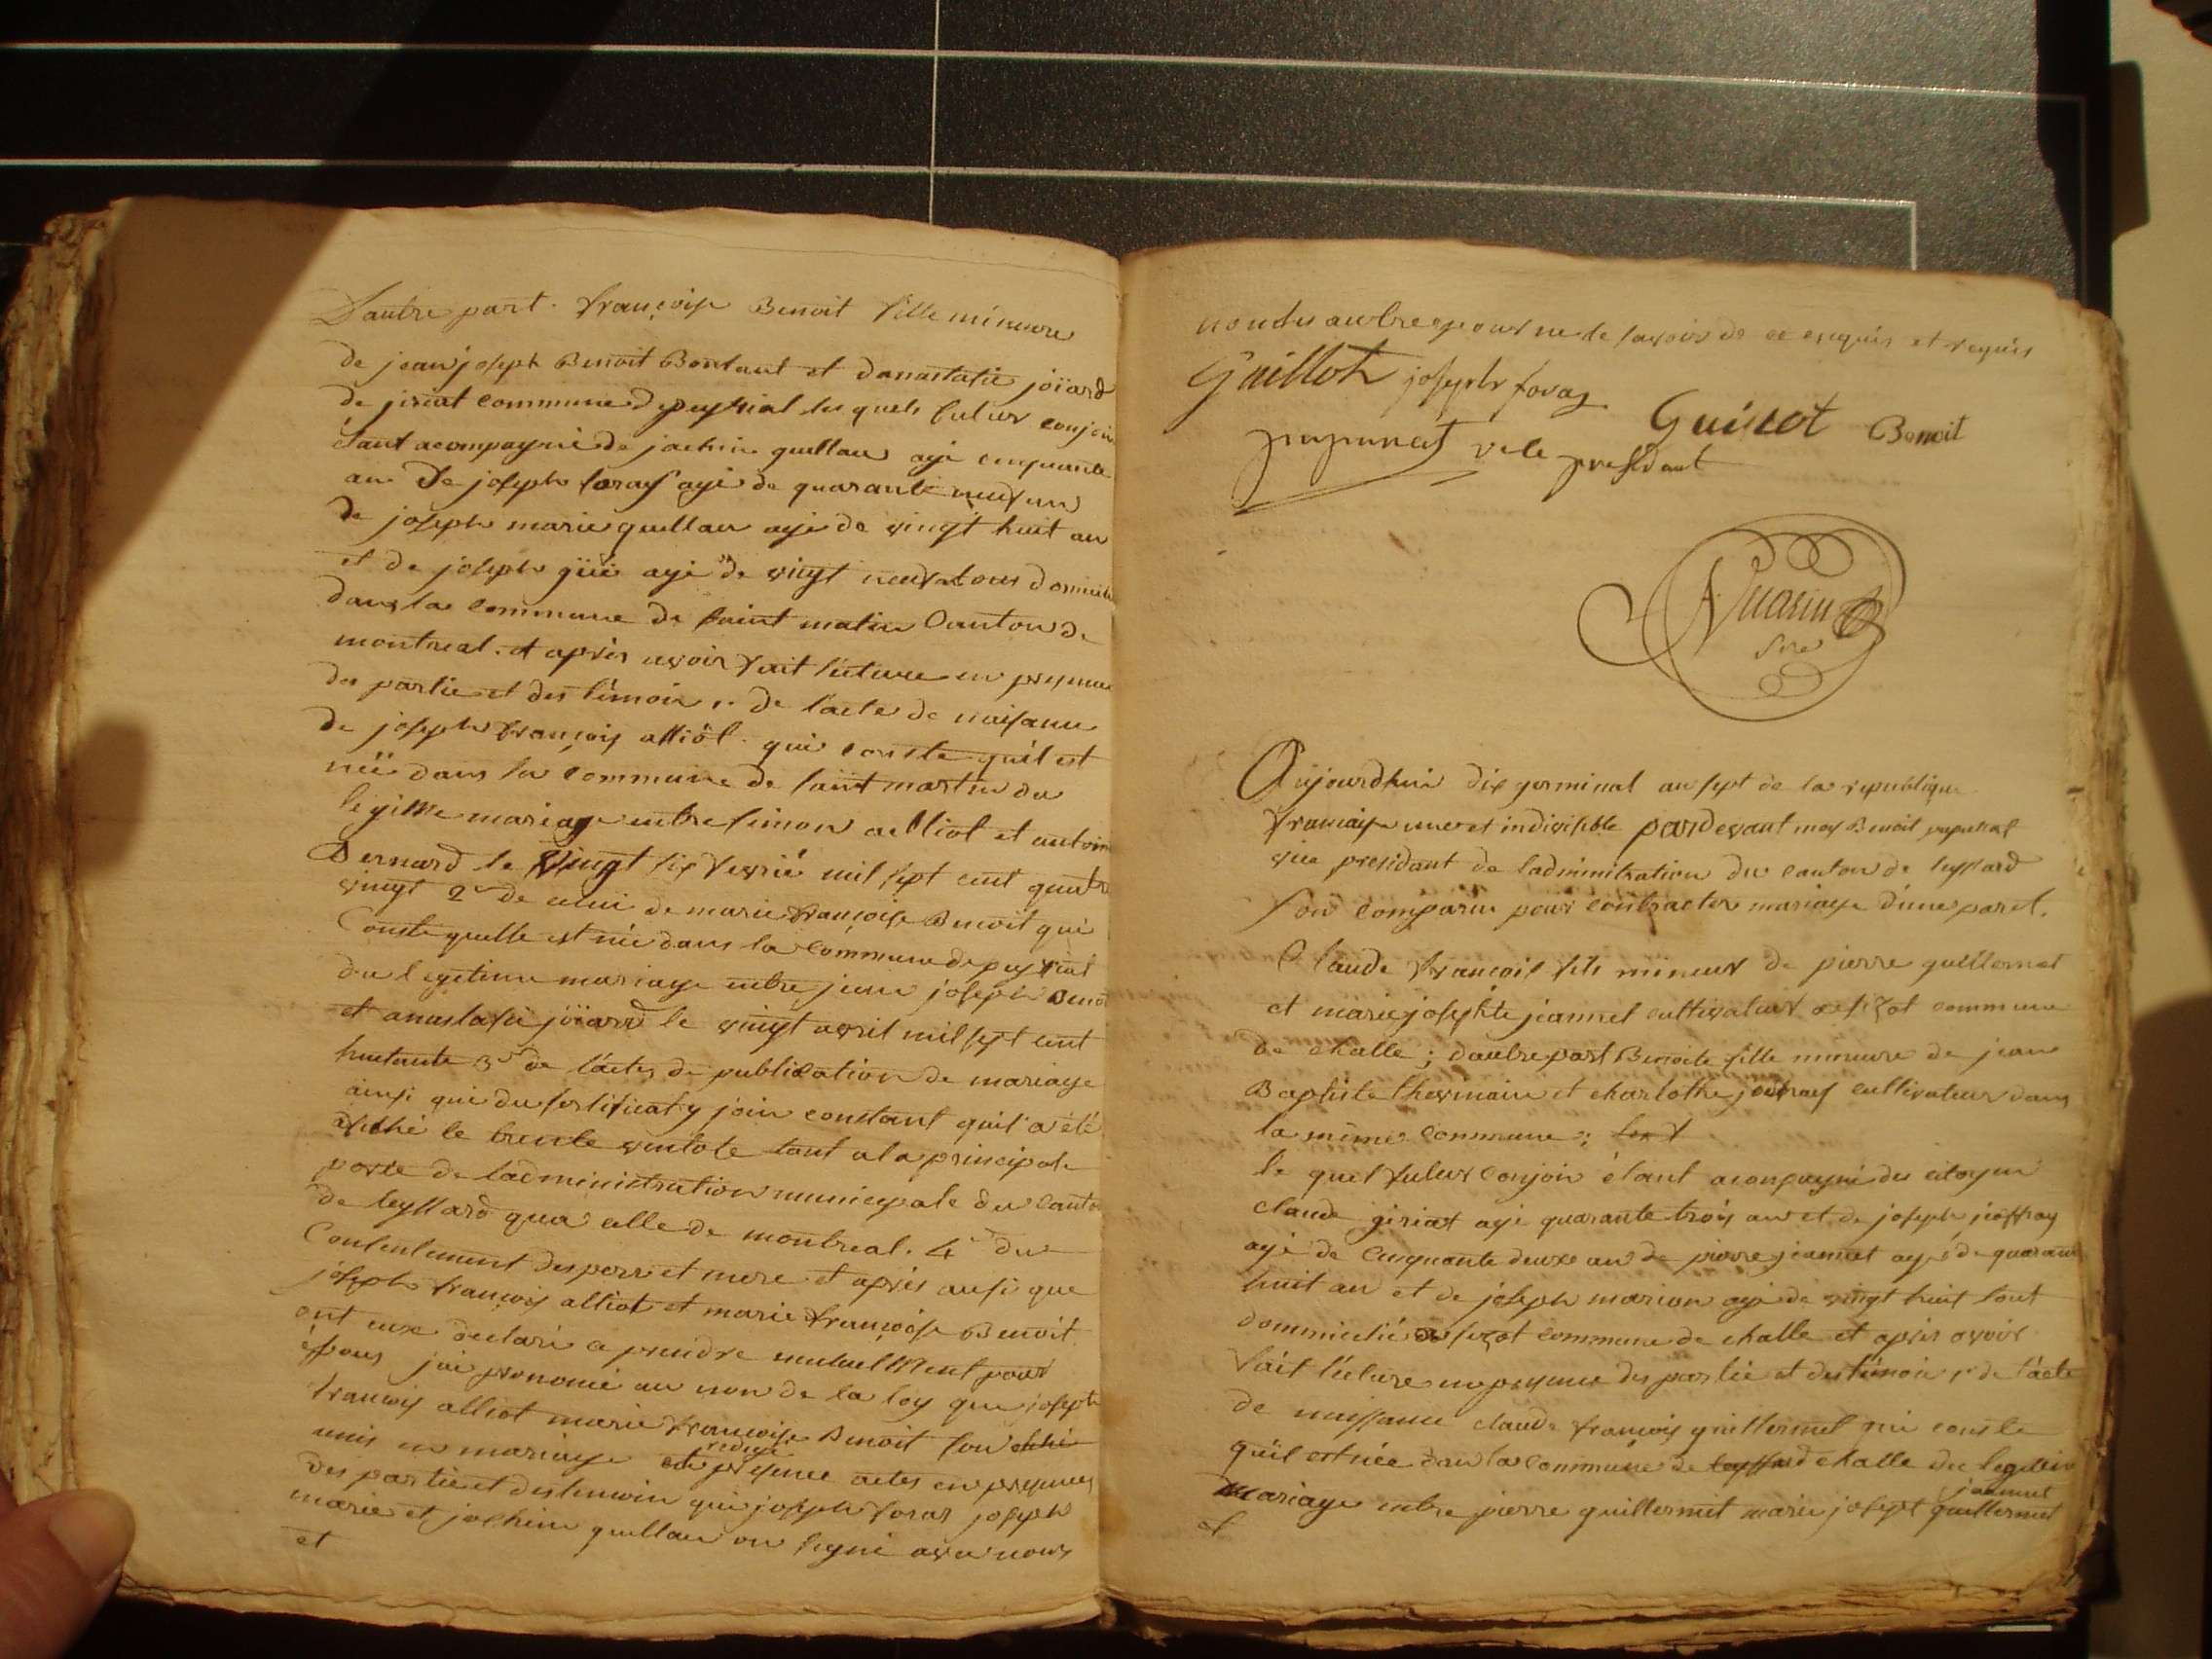 D'autre part. françoise Benoit fille mineure
de jean joseph Benoit Bontant et d'anastasie joïard
de jiriat commune de peyriat les quels futur conjoin
étant acompagnié de joachin guillau agé cinquante
an De joseph foras agé de quarante neuf an
de joseph marie guillau agé de vingt huit an
et de joseph agé de vingt neuf tous domicilié
dans la commune de saint matin Canton de
montreal. et après avoir fait lecture en presence
des partie et des témoin 1er De l'acte de naisance
de joseph françois alliôt qui conste qu'il est
née dans la commune de saint martin du
légitime mariage entre simon alliot et antoin
Bernard le Vingt six fevrié mil sept cent quatre
vingt 2e de celui de marie françoise Benoit qui
Conste quelle est née dans la commune de peyriat
du legitime mariage entre jean joseph Benoi
et anastasie joïard le vingt avril mil sept cent
huitante 3e de l'actes de publication de mariage
ainsi que du sertificat y join constant quil a été
afiché le trente ventote tant a la principale
porte de l'administration municipale du canton
de leyssard qua celle de montreal. 4e du
Consentement des perre et mere et après ausi que
joseph françois alliot et marie françoise Benoit
ont eux declaré a prendre mutuellement pour
épous jai prononcé au non de la loy que joseph
françois alliot marie françoise Benoit son
unis en mariage redigé presence actes en presence
des partie et des temoin qui joseph foras joseph
marie et jochim guillau on signé avec nous
et
non les autres pour ne le savoir de ce enquis et requis
Guillot joseph foras Guillot Benoit
papunat vice presidant
Nuarin
Sre
Aujourdhui dix germinal an sept de la republique
française une et indivisible pardevant moy Benoit papunat
vice presidant de l'adminitration du canton de leyssard
son comparu pour contracter mariage d'une part.
Claude françois fils mineur de pierre guillermet
et marie josephte jeannet cultivateur a sizot commune
de challe; d'autre part Benoite fille mineure de jean
Baptiste thermain et charlothe joufray cultivateur dans
la même commune;
le quel futur conjoin étant acompagné des citoyen
claude giriat agé quarante trois an et de joseph jeoffray
agé de cinquante deux an de pierre jeannet agé de quarante
huit an et de joseph marion agé de vingt huit tout
dommicilié a sizot commune de challe et après avoir
fait lecture en presence des partie et des témoin 1er de l'acte
de naissance claude françois guillermet qui conste
qu'il est née dans la commune de leyssard challe du legitime
jeannet
Mariage entre pierre guillermet marie josept guillermet